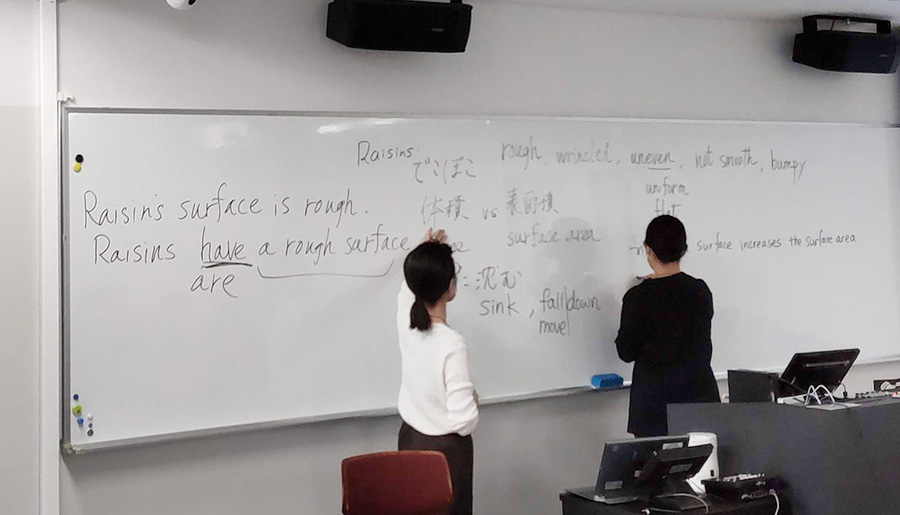 Raisins:
でこぼこ
rough, wrincled, uneven, not smooth, bumpy
uniform
flat
Raisin's surface is rough.
Raisins have a rough surface
are
体積 vs 表面積
surface area
surface increases the surface area
沈む
sink, fall down
move